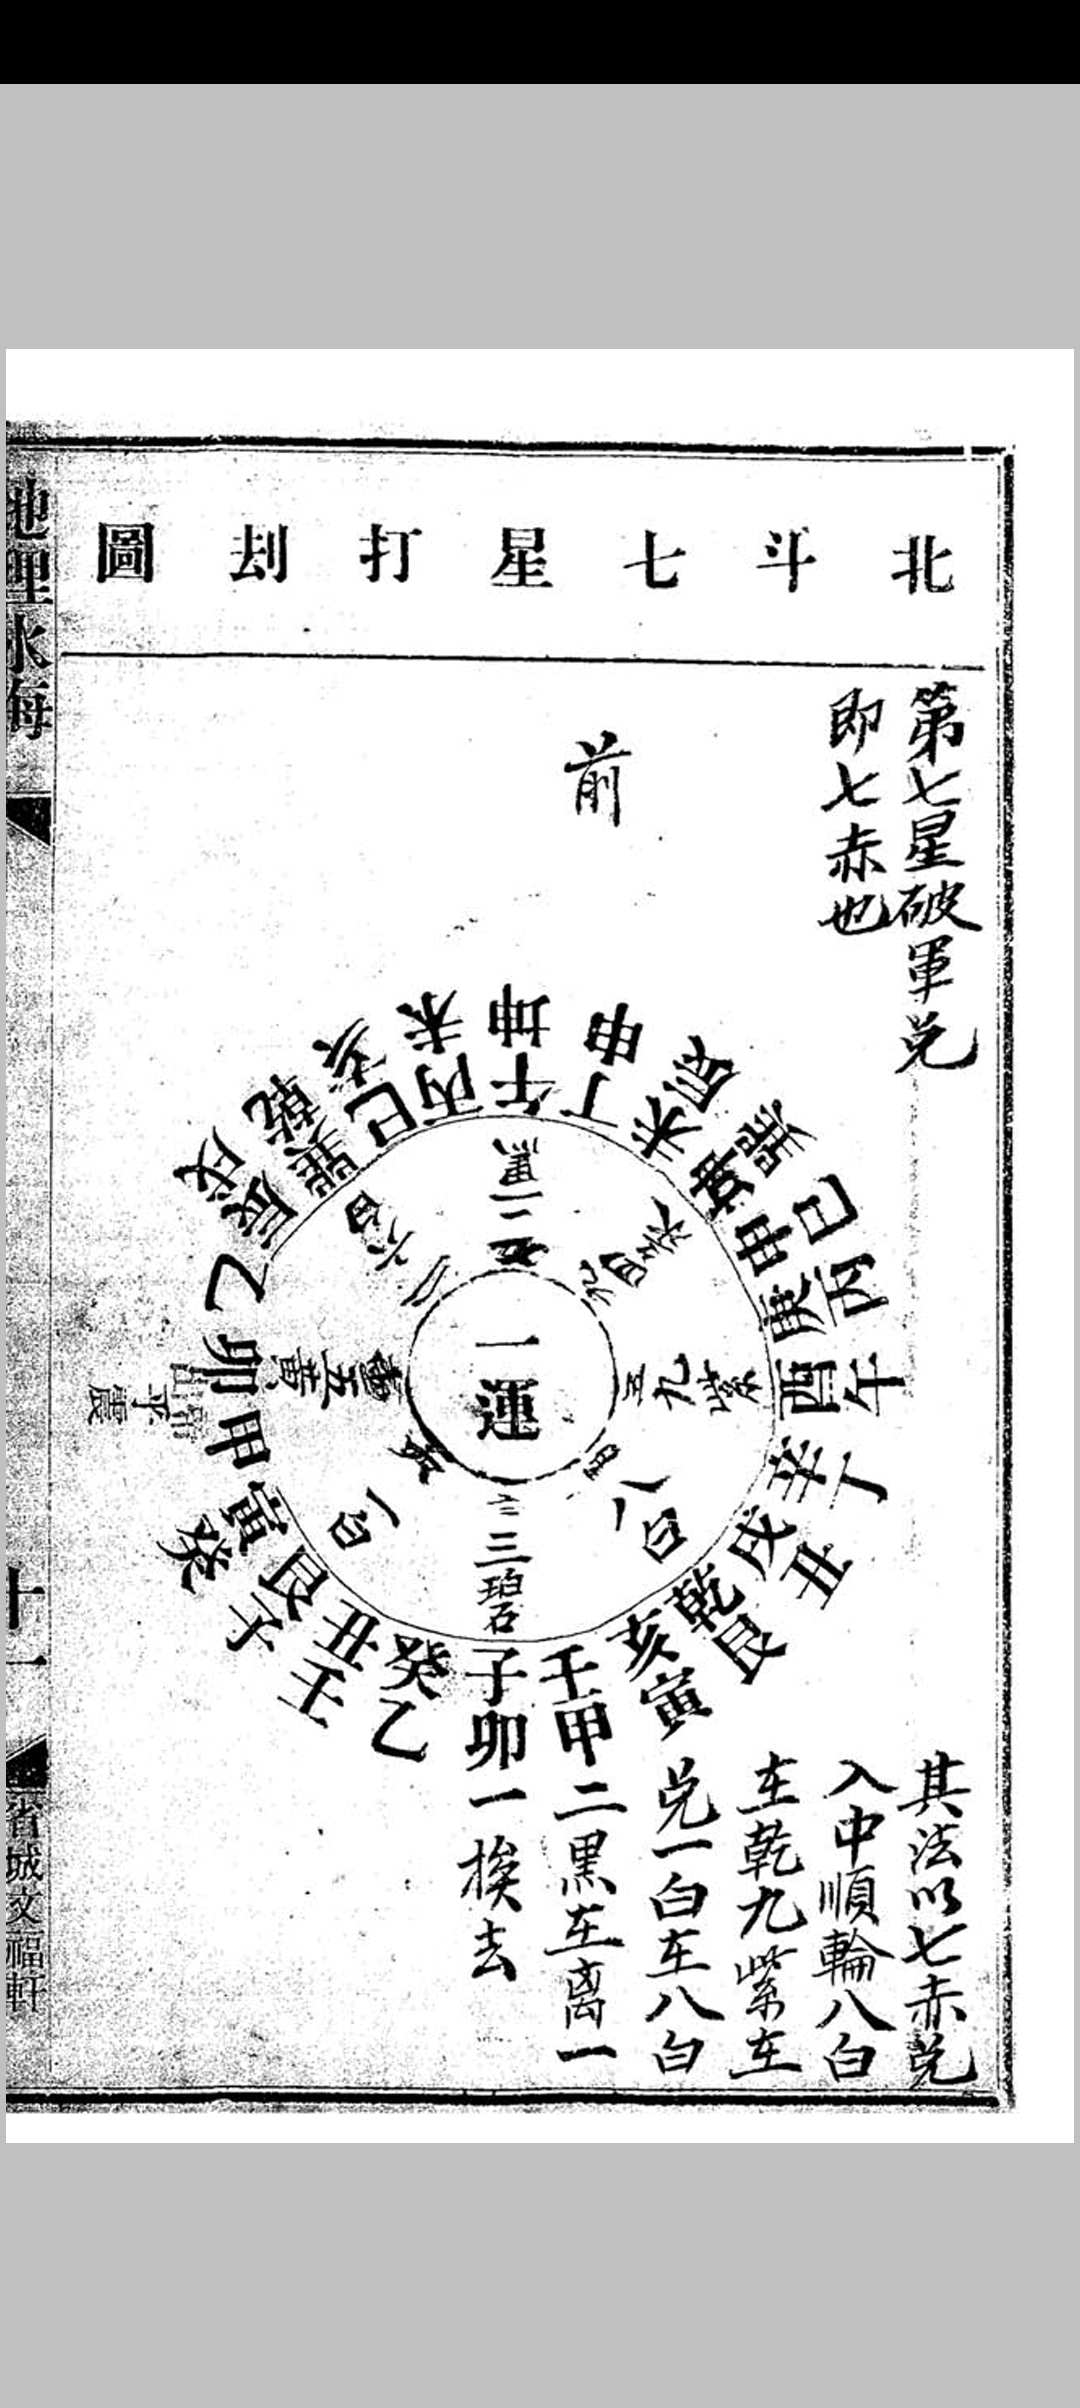 北斗七星打刦圖
第七星破軍兌
即七赤也
前
一運
未坤申
亥
丙午丁
巳
乾
戌
巽
辰
乙
卯
甲
寅
艮
丑
癸
子
壬
癸
子
壬
乙
卯
甲
亥
寅
乾
艮
戌
丑
辛
丁
酉
午
庚
丙
申
巳
坤
巽
未
辰
二黑
六白
五黃
一白
三碧
八白
九紫
其法以七赤兌
入中順輪八白
在乾九紫在
兌一白在八白
二黑在离一
一挨去
地理水海
十一
省城文福軒